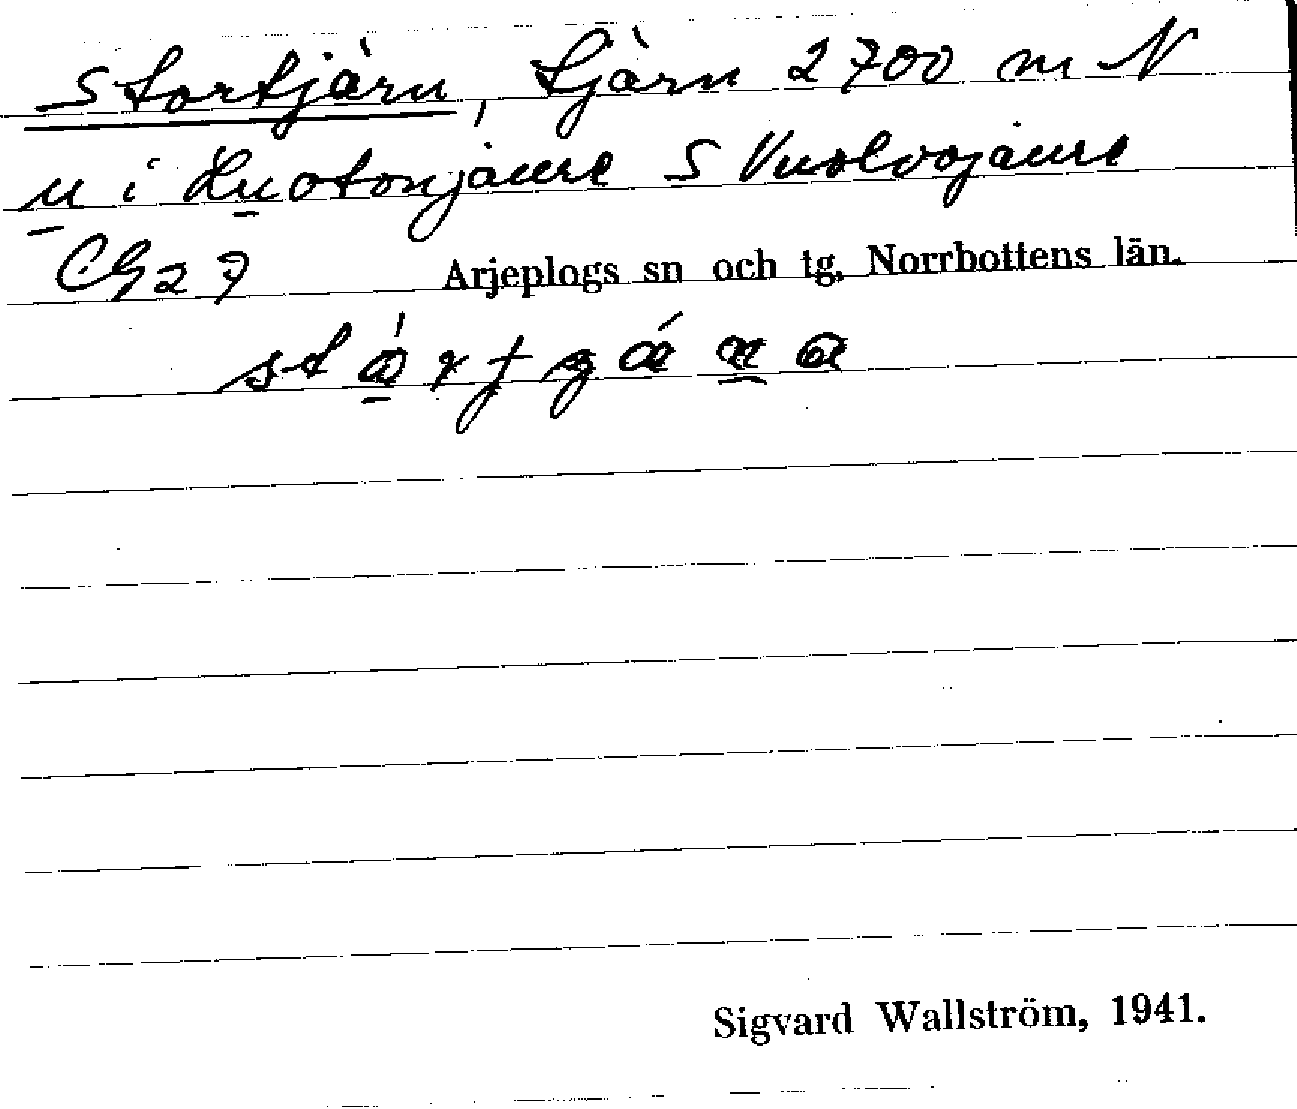 Stortjärn, tjärn 2700 m N
u i Luotonjaure S Vuolvojaure
CG27 Arjeplogs sn och tg, Norrbottens län.
Sigvard Wallström, 1941.